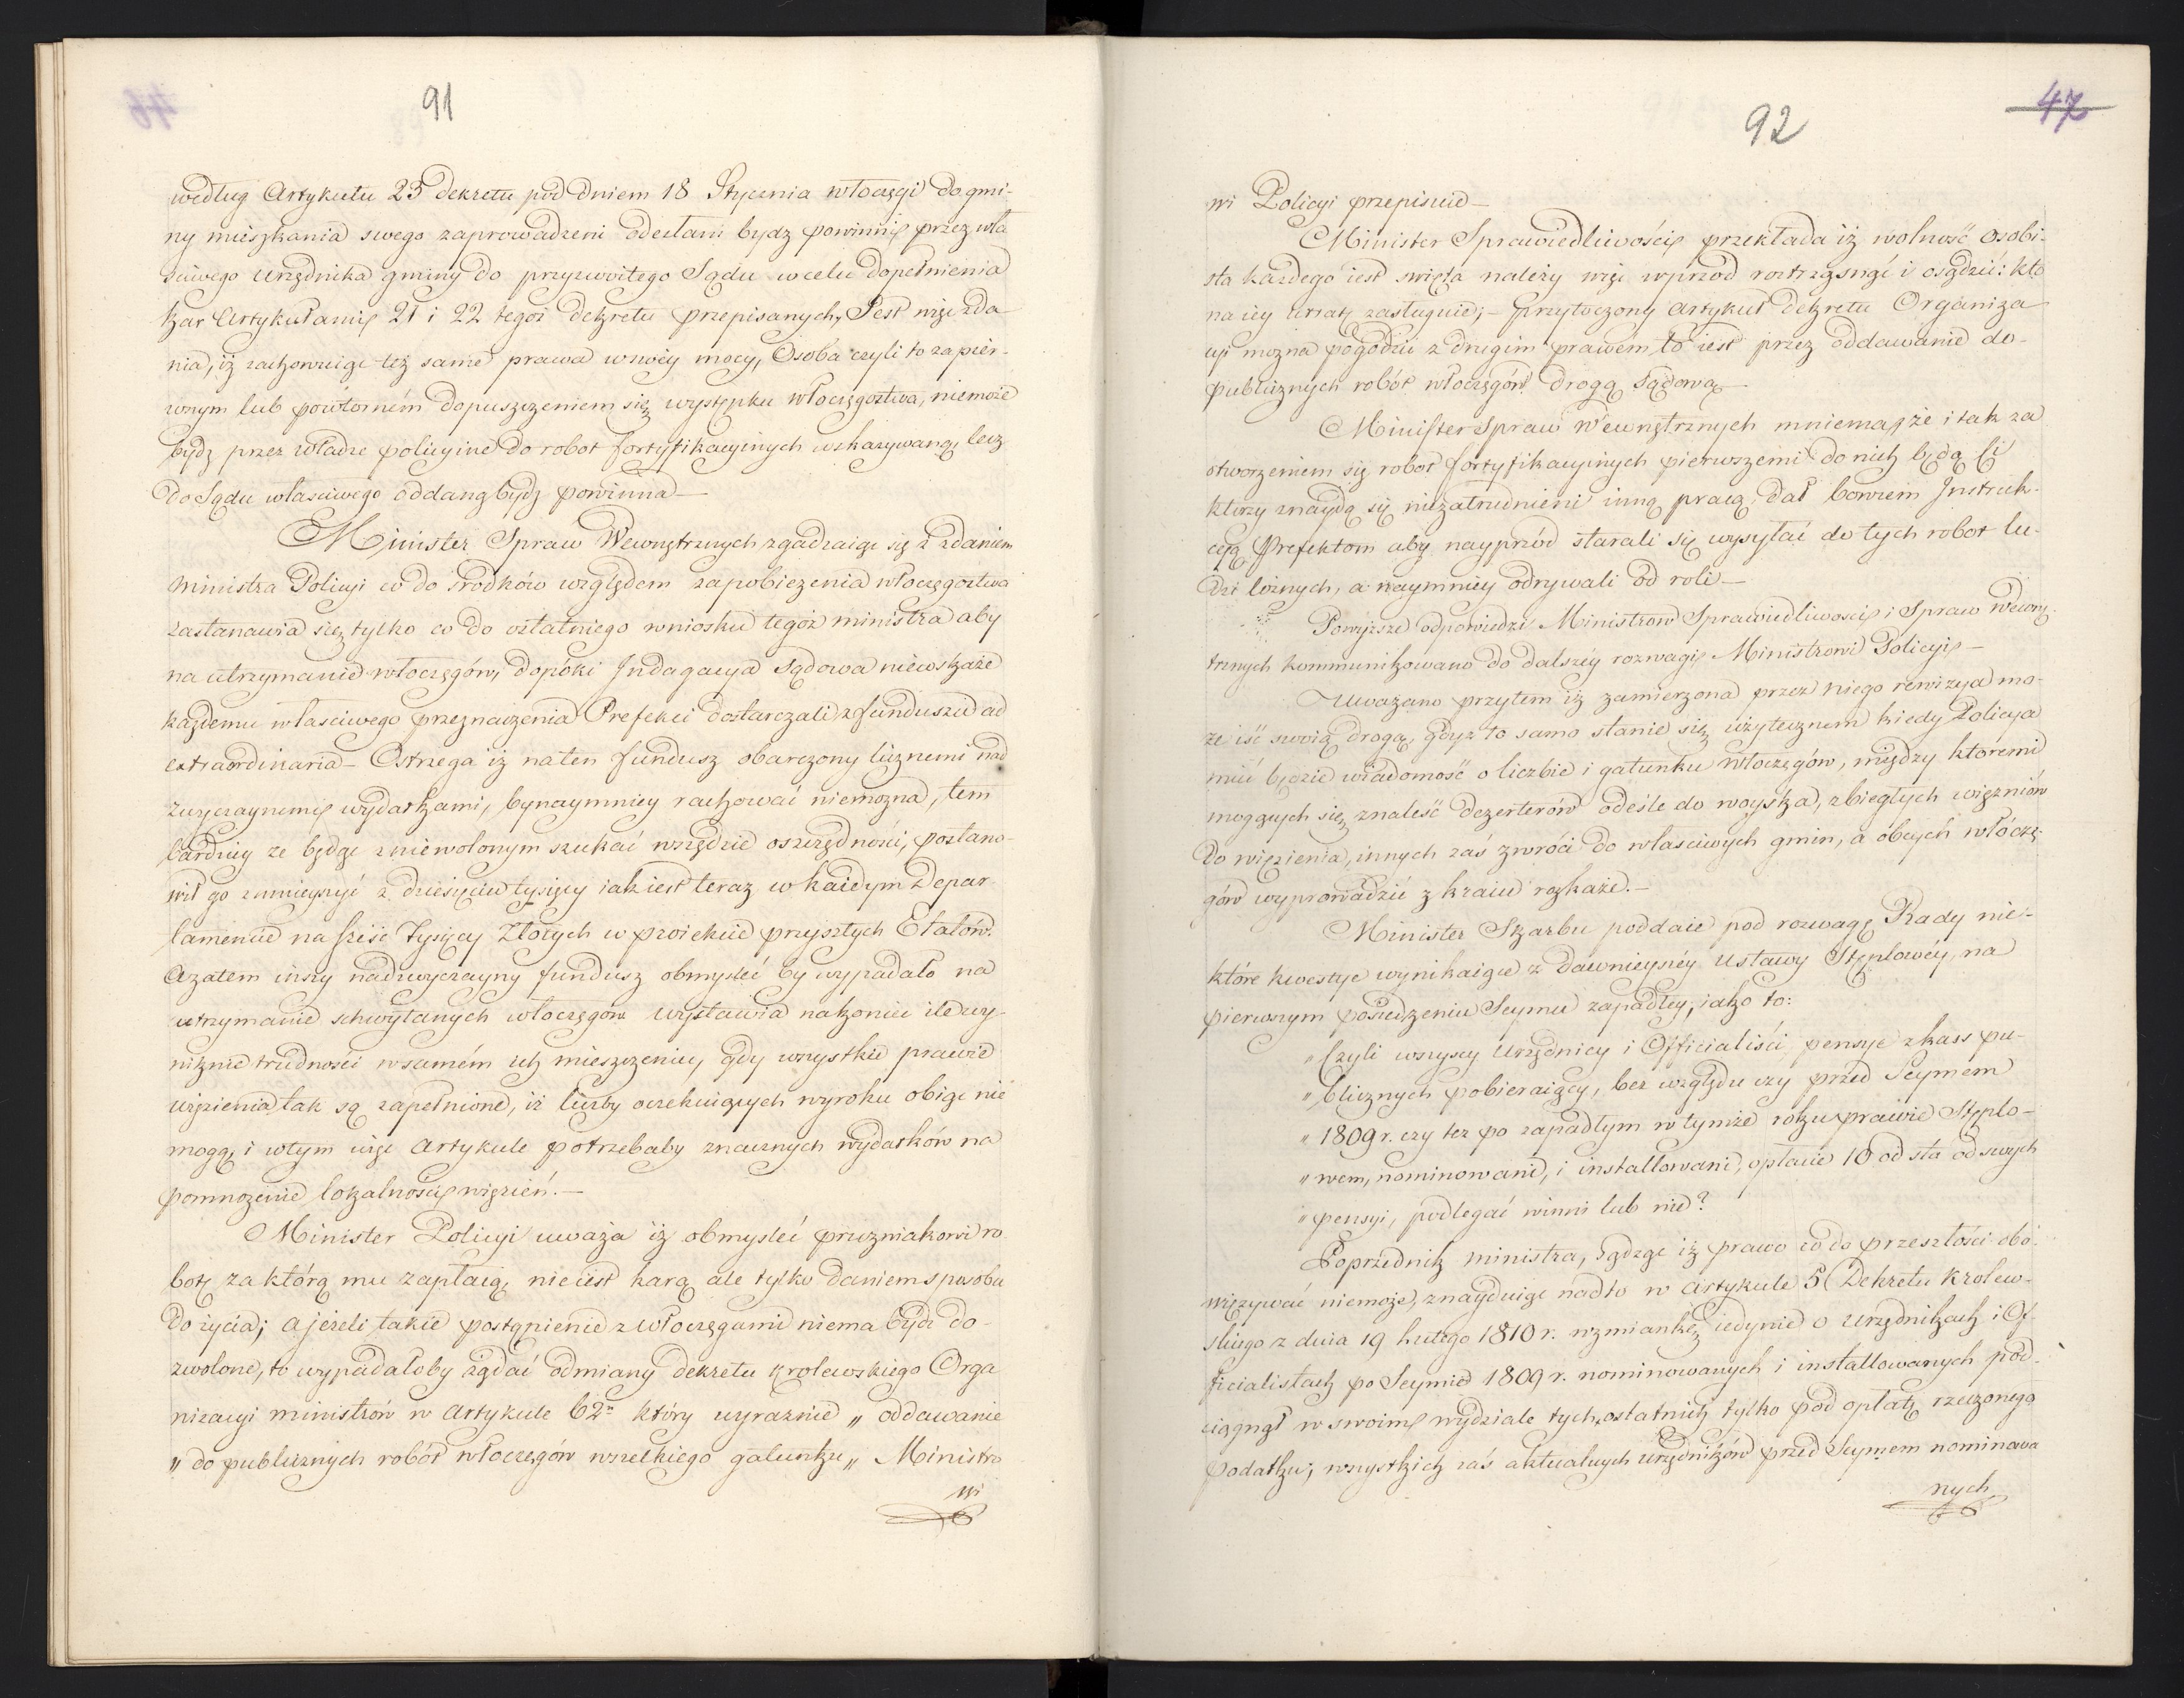 91
według Artykułu 23 dekretu pod dniem 18 Stycznia włoczęgi do gmi-
ny mieszkania swego zaprowadzeni odesłani bydz powinni przez wła
sciwego urzędnika gminy do przyzwoitego Sądu w celu dopełnienia
kar Artykułami 21 i 22 tegoż dekretu przepisanych, Jest więc zda
nia, iż zachowuiąc też same prawa w swéy mocy, Osoba czyli to za pier-
wszym lub powtorném dopuszczeniem się występku włoczęgostwa, niemoże
bydz przez władze policyine do robot fortyfikacyinych wskazywaną lecz
do Sądu własciwego oddaną bydz powinna —
Minister Spraw Wewnętrznych zgadzaiąc się z zdaniem
Ministra Policyi co do srodków względem zapobieżenia włoczęgostwa
zastanawia się tylko co do ostatniego wniosku tegoż ministra aby
na utrzymanie włoczęgów, dopóki Indagacya Sądowa niewskaże
każdemu własciwego przeznaczenia Prefekci dostarczali z funduszu ad
extraordinaria — Ostrzega iż na ten fundusz obarczony licznemi nad
zwyczaynemi wydatkami, bynaymniey rachować niemożna, tem
bardziey ze będąc zniewolonym szukać wszędzie oszczędności, postano-
wił go zmnieyszyć z dziesięciu tysięcy iak iest teraz w każdym Depar-
tamencie na sześć Tysięcy Złotych w proiekcie przyszłych Etatów.
Azatem inszy nadzwyczayny fundusz obmysleć by wypadało na
utrzymanie schwytanych włoczęgów wystawia nakoniec ile wy-
niknie trudności w samém ich mieszczeniu, gdy wszystkie prawie
więzienia tak są zapełnione, iż liczby oczekuiących wyroku obiąć nie
mogą, i w tym więc Artykule potrzebaby znacznych wydatków na
pomnożenie lokalności więzień. —
Minister Policyi uważa iż obmysleć prózniakowi ro
botę za którą mu zapłacą, nie iest karą ale tylko daniem sposobu
do życia; a jeżeli takie postąpienie z włoczęgami niema bydz do-
zwolone, to wypadałoby żądać odmiany dekretu Krolewskiego Orga
nizacyi ministrów w Artykule 62m który wyraznie „ oddawanie
„ do publicznych robót włoczęgów wszelkiego gatunku „ Ministro
wi
47
92
wi Policyi przepisuie —
Minister Sprawiedliwości przekłada iż wolność osobi-
sta każdego iest swięta należy więc wprzód roztrząsnąć i osądzić: kto
na iey utratę zasługuie; — przytoczony Artykuł dekretu Organiza
cyi można pogodzić z drugim prawem to iest przez oddawanie do-
publicznych robót włoczęgów drogą Sądową —
Minister Spraw Wewnętrznych mniema, że i tak za
otworzeniem się robot fortyfikacyinych pierwszemi do nich będą ci
ktorzy znaydą się niezatrudnieni inną pracą, dał bowiem Instruk-
cyą Prefektom aby nayprzód starali się wysyłać do tych robot lu-
dzi loznych, a naymniey odrywali od roli —
Powyższe odpowiedzi Ministrow Sprawiedliwości i Spraw Wewnę-
trznych kommunikowano do dalszéy rozwagi Ministrowi Policyi —
Uważano przytem iż zamierzona przez niego rewizya mo-
że iść swoią drogą, gdyz to samo stanie się użytecznem kiedy Policya
mieć będzie wiadomość o liczbie i gatunku włoczęgów, między ktoremi
mogących się znaleść dezerterów odeśle do woyska, zbiegłych więzniów
do więzienia, innych zaś zwróci do własciwych gmin, a obcych włóczę-
gów wyprowadzić z kraiu rozkaże. —
Minister Skarbu poddaie pod rozwagę Rady nie-
które kwestye wynikaiące z dawnieyszéy Ustawy Stęplowéy, na
pierwszym posiedzeniu Seymu zapadłey, iako to:
„ Czyli wszyscy Urzędnicy i Officialiści, pensye z kass pu-
„ blicznych pobieraiący, bez względu czy przed Seymem
„ 1809 r. czy tez po zapadłym w tymże roku prawie Stęplo-
„ wem, nominowani, i installowani, opłacie 10 od sta od swych
„ pensyi, podlegać winni lub nie?
Poprzednik ministra, sądząc iż prawo co do przeszłości obo-
więzywać niemoże, znayduiąc nadto w Artykule 5 Dekretu Krolew-
skiego z dnia 19 lutego 1810 r. wzmiankę iedynie o Urzędnikach i Of-
ficialistach po Seymie 1809 r. nominowanych i installowanych pod-
ciągnął w swoim wydziale tych ostatnich tylko pod opłatę rzeczonego
podatku; wszystkich zaś aktualnych urzędników przed Seymem nominowa
nych